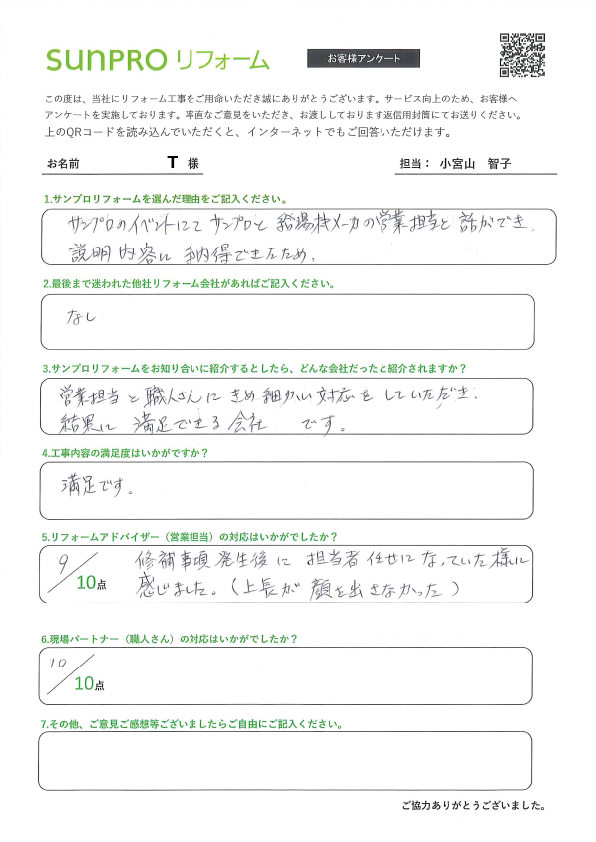 SUNPRO リフォーム
お客様アンケート
この度は、当社にリフォーム工事をご用命いただき誠にありがとうございます。サービス向上のため、お客様へ
アンケートを実施しております。率直なご意見をいただき、お渡ししております返信用封筒にてお送りください。
上のQRコードを読み込んでいただくと、インターネットでもご回答いただけます。
お名前 T 様 担当： 小宮山 智子
1.サンプロリフォームを選んだ理由をご記入ください。
サンプロのイベントにて サンプロと 給湯機メーカの営業担当と 話ができ、
説明内容に 納得できたため。
2.最後まで迷われた他社リフォーム会社があればご記入ください。
なし
3.サンプロリフォームをお知り合いに紹介するとしたら、どんな会社だったと紹介されますか？
営業担当と職人さんに きめ細かい対応をしていただき、
結果に 満足できる会社 です。
4.工事内容の満足度はいかがですか？
満足です。
5.リフォームアドバイザー（営業担当）の対応はいかがでしたか？
9／10点
修補事項発生後に 担当者任せになっていた様に
感じました。（上長が 顔を出さなかった）
6.現場パートナー（職人さん）の対応はいかがでしたか？
10／10点
7.その他、ご意見ご感想等ございましたらご自由にご記入ください。
ご協力ありがとうございました。